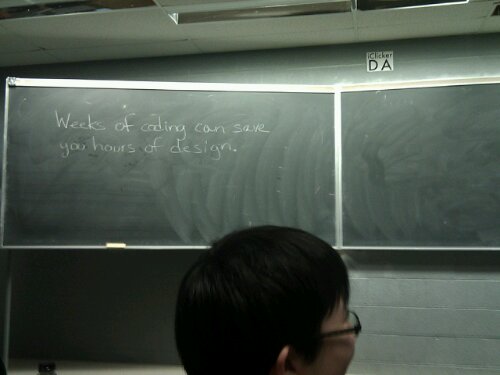 iClicker
DA
Weeks of coding can save
you hours of design.